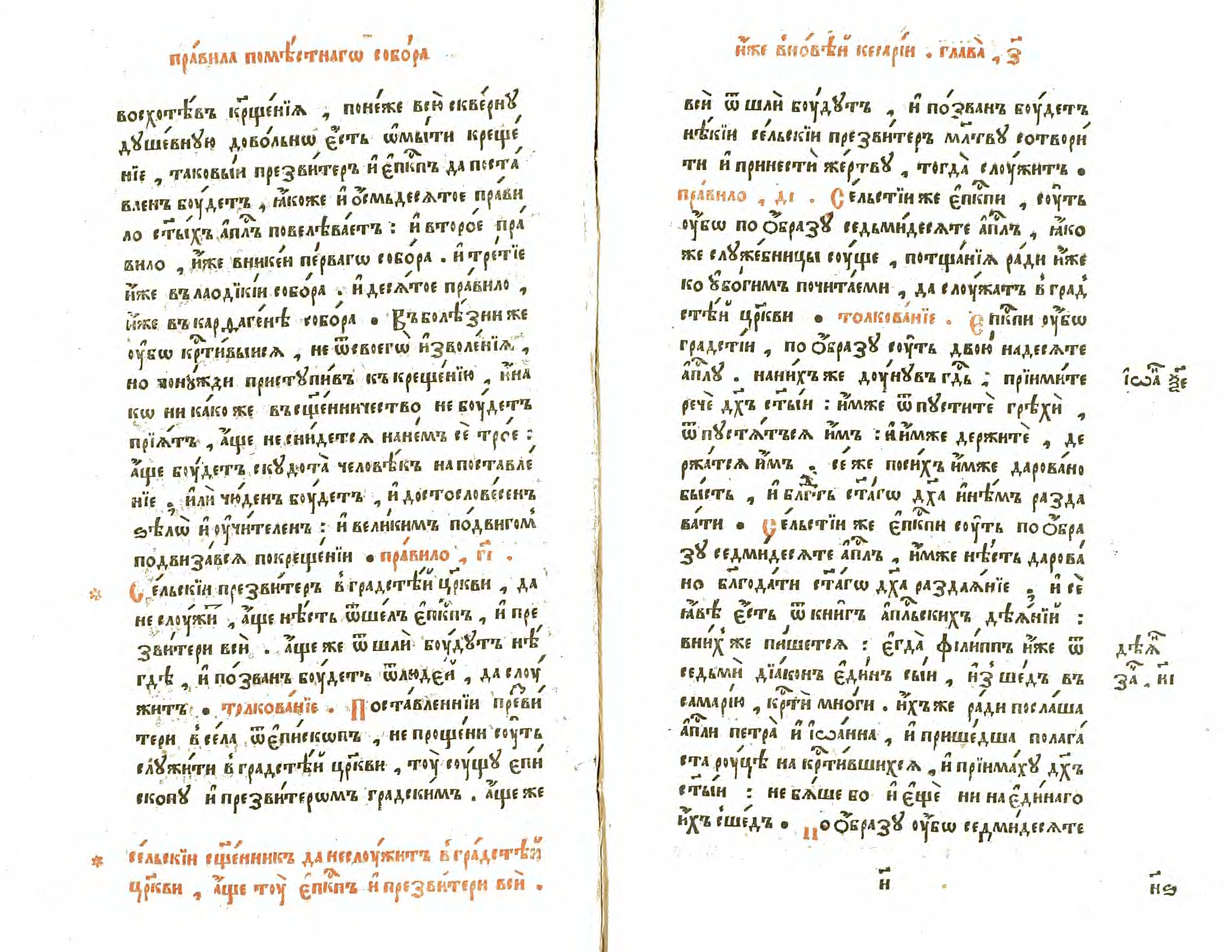 пра́вила помѣ́стнагѡ собо́ра
восхотѣ́въ кр҃ще́нїѧ , поне́же всю̀ скве́рну
дꙋше́вную дово́льнѡ є҆́сть ѡ҆мы́ти креще́
нїе , таковы́и презви́теръ и҆ є҆пк҃пъ да поста́
вленъ бꙋ́детъ , ꙗ҆́коже и҆ ѻ҆смьдесѧ́тое пра́ви
ло ст҃ы́хъ а҆п҃лъ повелѣва́етъ : и҆ второ́е пра́
вило , и҆́же вни́кеи пе́рвагѡ собо́ра . и҆ тре́тїе
и҆́же въ лаоди́кїи собо́ра . и҆ десѧ́тое пра́вило ,
и҆́же въ кардаге́нѣ собо́ра . Въ болѣ́зни же
ᲂу҆́бѡ кр҃ти́выисѧ , не ѿ своегѡ̀ и҆зволе́нїѧ ,
но по нꙋ́жди пристꙋпи́въ къ креще́нїю , и҆на
кѡ ника́коже въ сщ҃е́нничество не бꙋ́детъ
прїѧ́тъ , а҆́ще не сни́детсѧ на не́мъ сѐ тро́е :
а҆́ще бꙋ́детъ скꙋдота̀ человѣ́къ на поставле́
нїе , и҆лѝ чю́денъ бꙋ́детъ , и҆ достослове́сенъ
ѕѣлѡ̀ и҆ ᲂу҆чи́теленъ : и҆ вели́кимъ по́двигом
подвиза́всѧ по креще́нїи . пра́вило , г҃і .
* Се́льскїи презви́теръ в гра́дстѣй цр҃кви , да
не слꙋ́жи , а҆́ще нѣ́сть ѿше́лъ є҆пк҃пъ , и҆ пре
зви́тери всѝ . а҆́ще же ѿшлѝ бꙋ́дꙋтъ нѣ́
гдѣ , и҆ по́званъ бꙋ́детъ ѿ люде́й , да слꙋ́
житъ . толкова́нїе . Поставле́ннїи пре́зви
тери в се́ла ѿ є҆пи́скѡпъ , не проще́ни сꙋ́ть
слꙋжи́ти в гра́дстѣй цр҃кви , тꙋ̀ сꙋ́щꙋ є҆пи́
скопꙋ и҆ презви́терѡмъ гра́дскимъ . а҆́ще же
* се́льскїи сщ҃е́нникъ да не слꙋ́житъ в гра́дстѣй
цр҃кви , а҆́ще тꙋ̀ є҆пк҃пъ и҆ презви́тери всѝ .
и҆́же в но́вѣй кесарі́и . глава̀ , з҃
всѝ ѿшлѝ бꙋ́дꙋтъ , и҆ по́званъ бꙋ́детъ
нѣ́кїи се́льскїи презви́теръ мл҃твꙋ сотвори́
ти и҆ принестѝ же́ртвꙋ , тогда̀ слꙋ́житъ .
пра́вило , д҃і . Се́льстїи же є҆пк҃пи , сꙋ́ть
ᲂу҆́бѡ по ѻ҆́бразꙋ седьмидесѧ́те а҆п҃лъ , ꙗ҆́ко
же слꙋже́бницы сꙋ́ще , потща́нїѧ ра́ди и҆́же
ко ᲂу҆бо́гимъ почита́еми , да слꙋ́жатъ в гра́д
стѣй цр҃кви . толкова́нїе . Є҆пк҃пи ᲂу҆́бѡ
гра́дстїи , по ѻ҆́бразꙋ сꙋ́ть двою́ надесѧте
а҆п҃лꙋ . на ни́хъ же дꙋ́нꙋвъ гд҃ь ; прїими́те
і҆ѡа҃ з҃е
речѐ дх҃ъ ст҃ы́и : и҆́мже ѿпꙋ́стите грѣхѝ ,
ѿпꙋ́стѧтьсѧ и҆̀мъ : и҆ и҆́мже держитѐ , де
ржа́тсѧ и҆̀мъ . се́ же по си́хъ и҆́мже дарова́но
бы́сть , и҆ бл҃гть ст҃а́гѡ дх҃а и҆нѣ́мъ разда
ва́ти . Се́льстїи же є҆пк҃пи сꙋ́ть по ѻ҆́бра
зꙋ седмидесѧ́те а҆п҃лъ , и҆́мже нѣ́сть дарова́
но бл҃года́ти ст҃а́гѡ дх҃а раздаѧ́нїе ; и҆ сѐ
ꙗ҆́вѣ є҆́сть ѿ кни́гъ а҆п҃льскихъ дѣѧ́нїй :
в ни́х же пи́шетсѧ : є҆гда̀ фїли́ппъ и҆́же ѿ
дѣѧ҃
седьмѝ дїа́конъ є҆ди́нъ сы́и , и҆зше́дъ въ
за҃ , и҃і
самарі́ю , кр҃тѝ мно́ги . и҆́хъ же ра́ди посла́ша
а҆п҃ли петра̀ и҆ і҆ѡа́нна , и҆ прише́дша полага́
ста рꙋ́цѣ на кр҃ти́вшихсѧ , и҆ прїима́хꙋ дх҃ъ
ст҃ы́и : не бѧ́ше бо и҆ є҆щѐ ни на є҆ди́наго
и҆́хъ сше́дъ . По ѻ҆́бразꙋ ᲂу҆́бѡ седмидесѧ́те
и҃
н҃ѕ